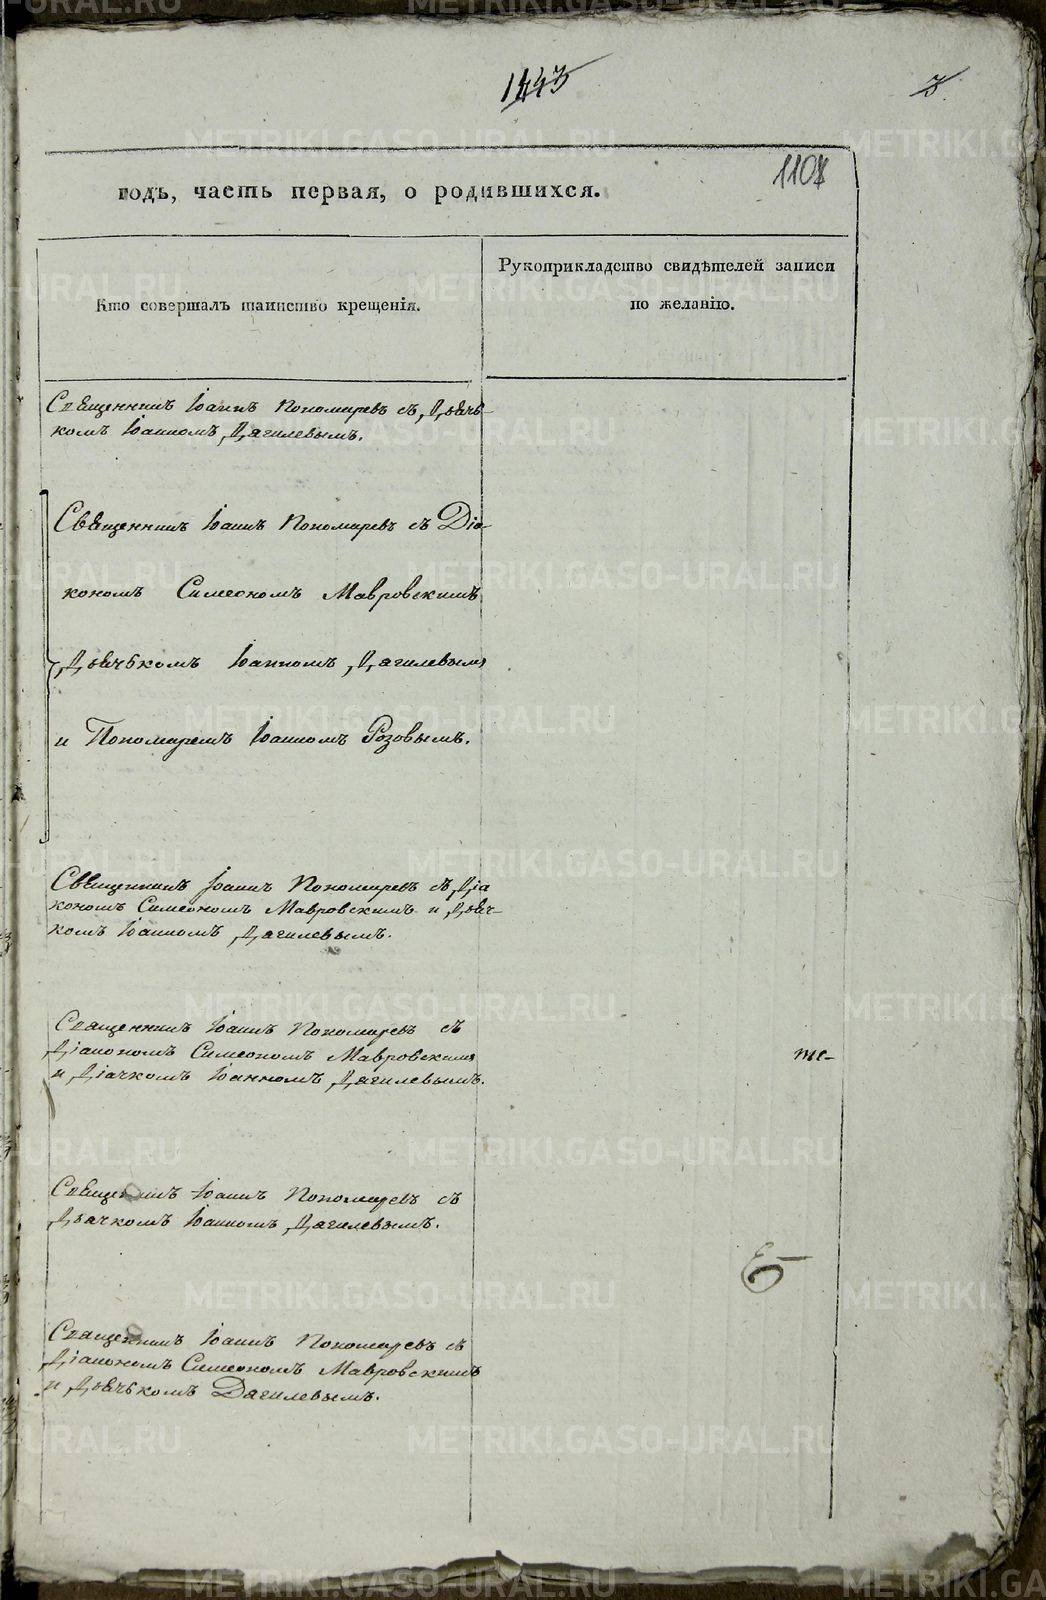 1443
3.
годъ, часть первая, о родившихся.
1107
Кто совершалъ таинство крещенія.
Рукоприкладство свидѣтелей записи
по желанію.
Священникъ Іоаннъ Пономаревъ съ Дьяч-
комъ Іоанномъ Дягилевымъ.
Священникъ Іоаннъ Пономаревъ съ Діа-
кономъ Симеономъ Мавровскимъ
Дьячкомъ Іоанномъ Дягилевымъ
и Пономаремъ Іоанномъ Розовымъ.
Священникъ Іоаннъ Пономаревъ съ Діа
кономъ Симеономъ Мавровскимъ и Дьяч-
комъ Іоанномъ Дягилевымъ.
Священникъ Іоаннъ Пономаревъ съ
Діакономъ Симеономъ Мавровскимъ
и Діачкомъ Іоанномъ Дягилевымъ.
те-
Священникъ Іоаннъ Пономаревъ съ
Дьячкомъ Іоанномъ Дягилевымъ.
Священникъ Іоаннъ Пономаревъ съ
Діакономъ Симеономъ Мавровскимъ
и Дьячкомъ Дягилевымъ.
METRIKI.GASO-URAL.RU